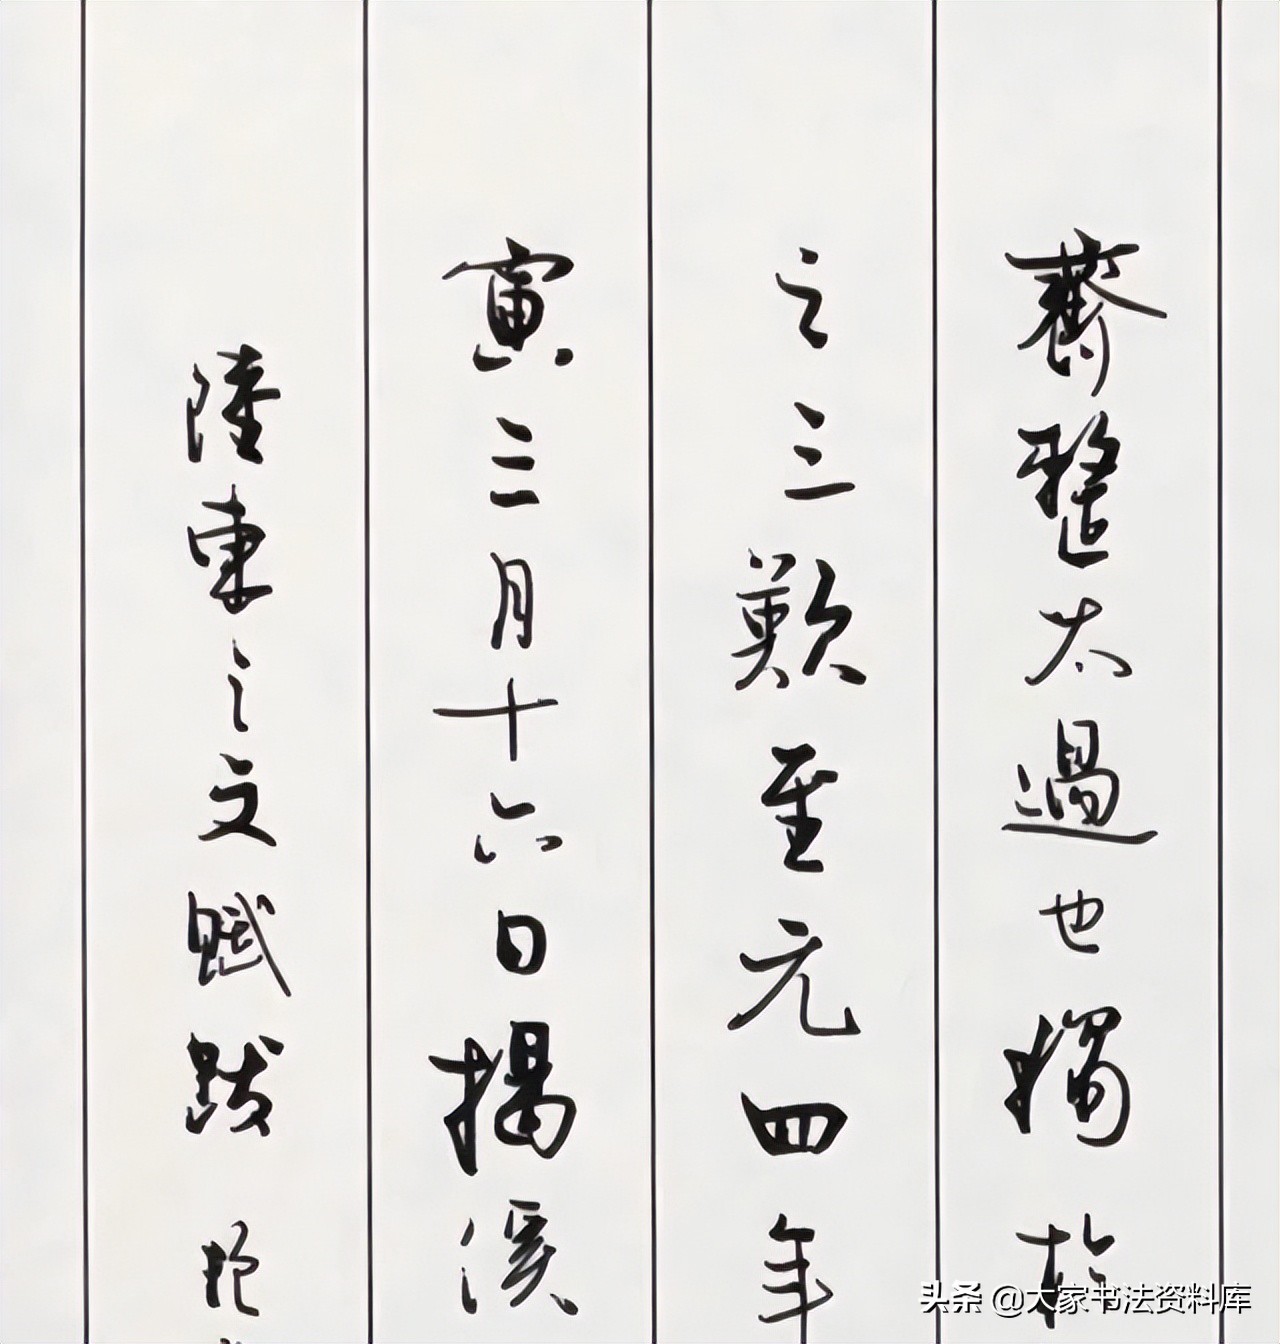 齊整太過也獨於
之三歎至元四年
寅三月十六日揭溪
陸東之文賦跋 抱
头条 @大家书法资料库